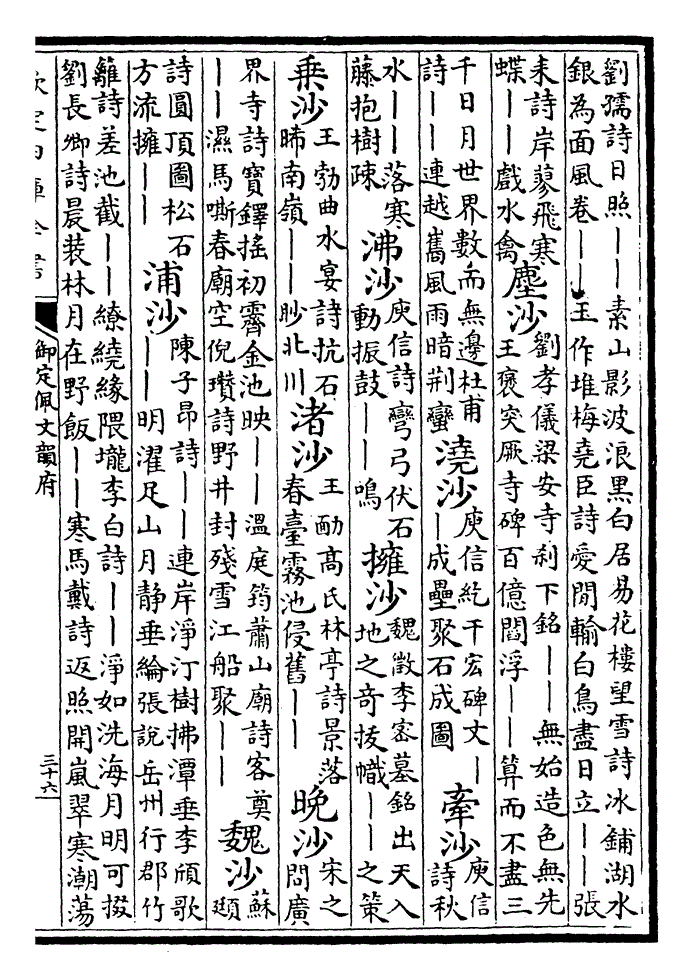 劉孺詩日照——素山影波浪黑白居易花樓望雪詩冰鋪湖水
銀為面風卷——玉作堆梅堯臣詩愛閒輸白鳥盡日立——張
耒詩岸蓼飛寒
蝶——戲水禽
塵沙
劉孝儀梁安寺刹下銘——無始造色無先
王褒突厥寺碑百億閻浮——算而不盡三
千日月世界數而無邊杜甫
詩——連越嶲風雨暗荆蠻
澆沙
庾信紇干宏碑文—
—成壘聚石成圖
牽沙
庾信
詩秋
水——落寒
藤抱樹疎
沸沙
庾信詩彎弓伏石
動振鼓——鳴
擁沙
魏徵李密墓銘出天入
地之奇拔幟——之策
乗沙
王勃曲水宴詩抗石
晞南嶺——眇北川
渚沙
王勔高氏林亭詩景落
春臺霧池侵舊——
晚沙
宋之
問廣
界寺詩寳鐸搖初霽金池映——温庭筠蕭山廟詩客奠
——濕馬嘶春廟空倪瓚詩野井封殘雪江船聚——
魏沙
蘇
頲
詩圓頂圖松石
方流擁——
浦沙
陳子昂詩——連岸淨汀樹拂潭垂李頎歌
——明濯足山月静垂綸張說岳州行郡竹
籬詩差池截——繚繞緣隈壠李白詩——淨如洗海月明可掇
劉長卿詩晨装林月在野飯——寒馬戴詩返照開嵐翠寒潮蕩
欽定四庫全書
御定佩文韻府
三十六